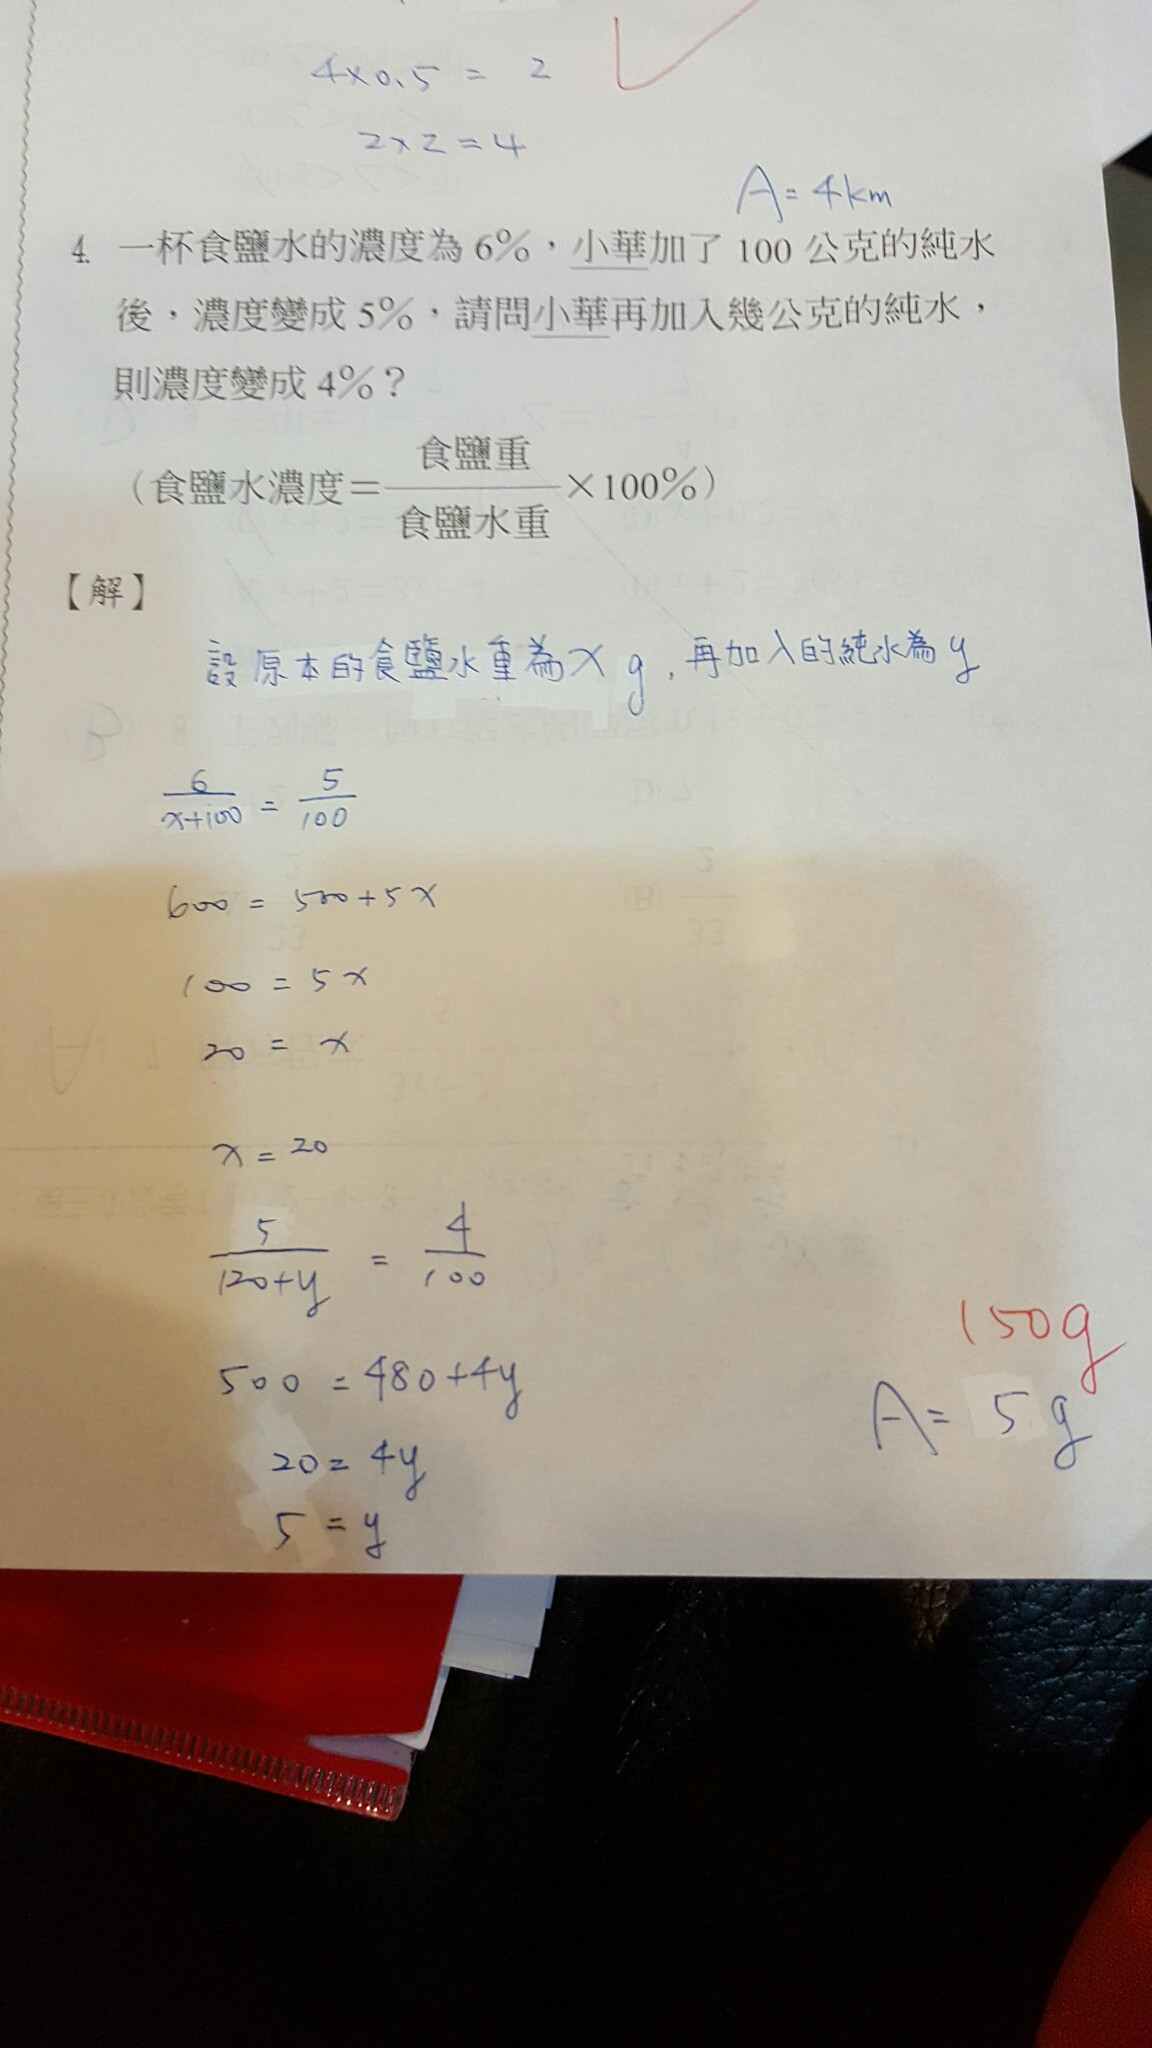 4×0.5 = 2
2×2=4
A=4km
4. 一杯食鹽水的濃度為6%，小華加了100公克的純水
後，濃度變成5%，請問小華再加入幾公克的純水，
則濃度變成4%？
（食鹽水濃度=食鹽重/食鹽水重×100%）
【解】
設原本的食鹽水重為x g，再加入的純水為y
6/x+100 = 5/100
600 = 500+5x
100 = 5x
20 = x
x = 20
5/120+y = 4/100
500 = 480+4y
20 = 4y
5 = y
150g
A= 5g